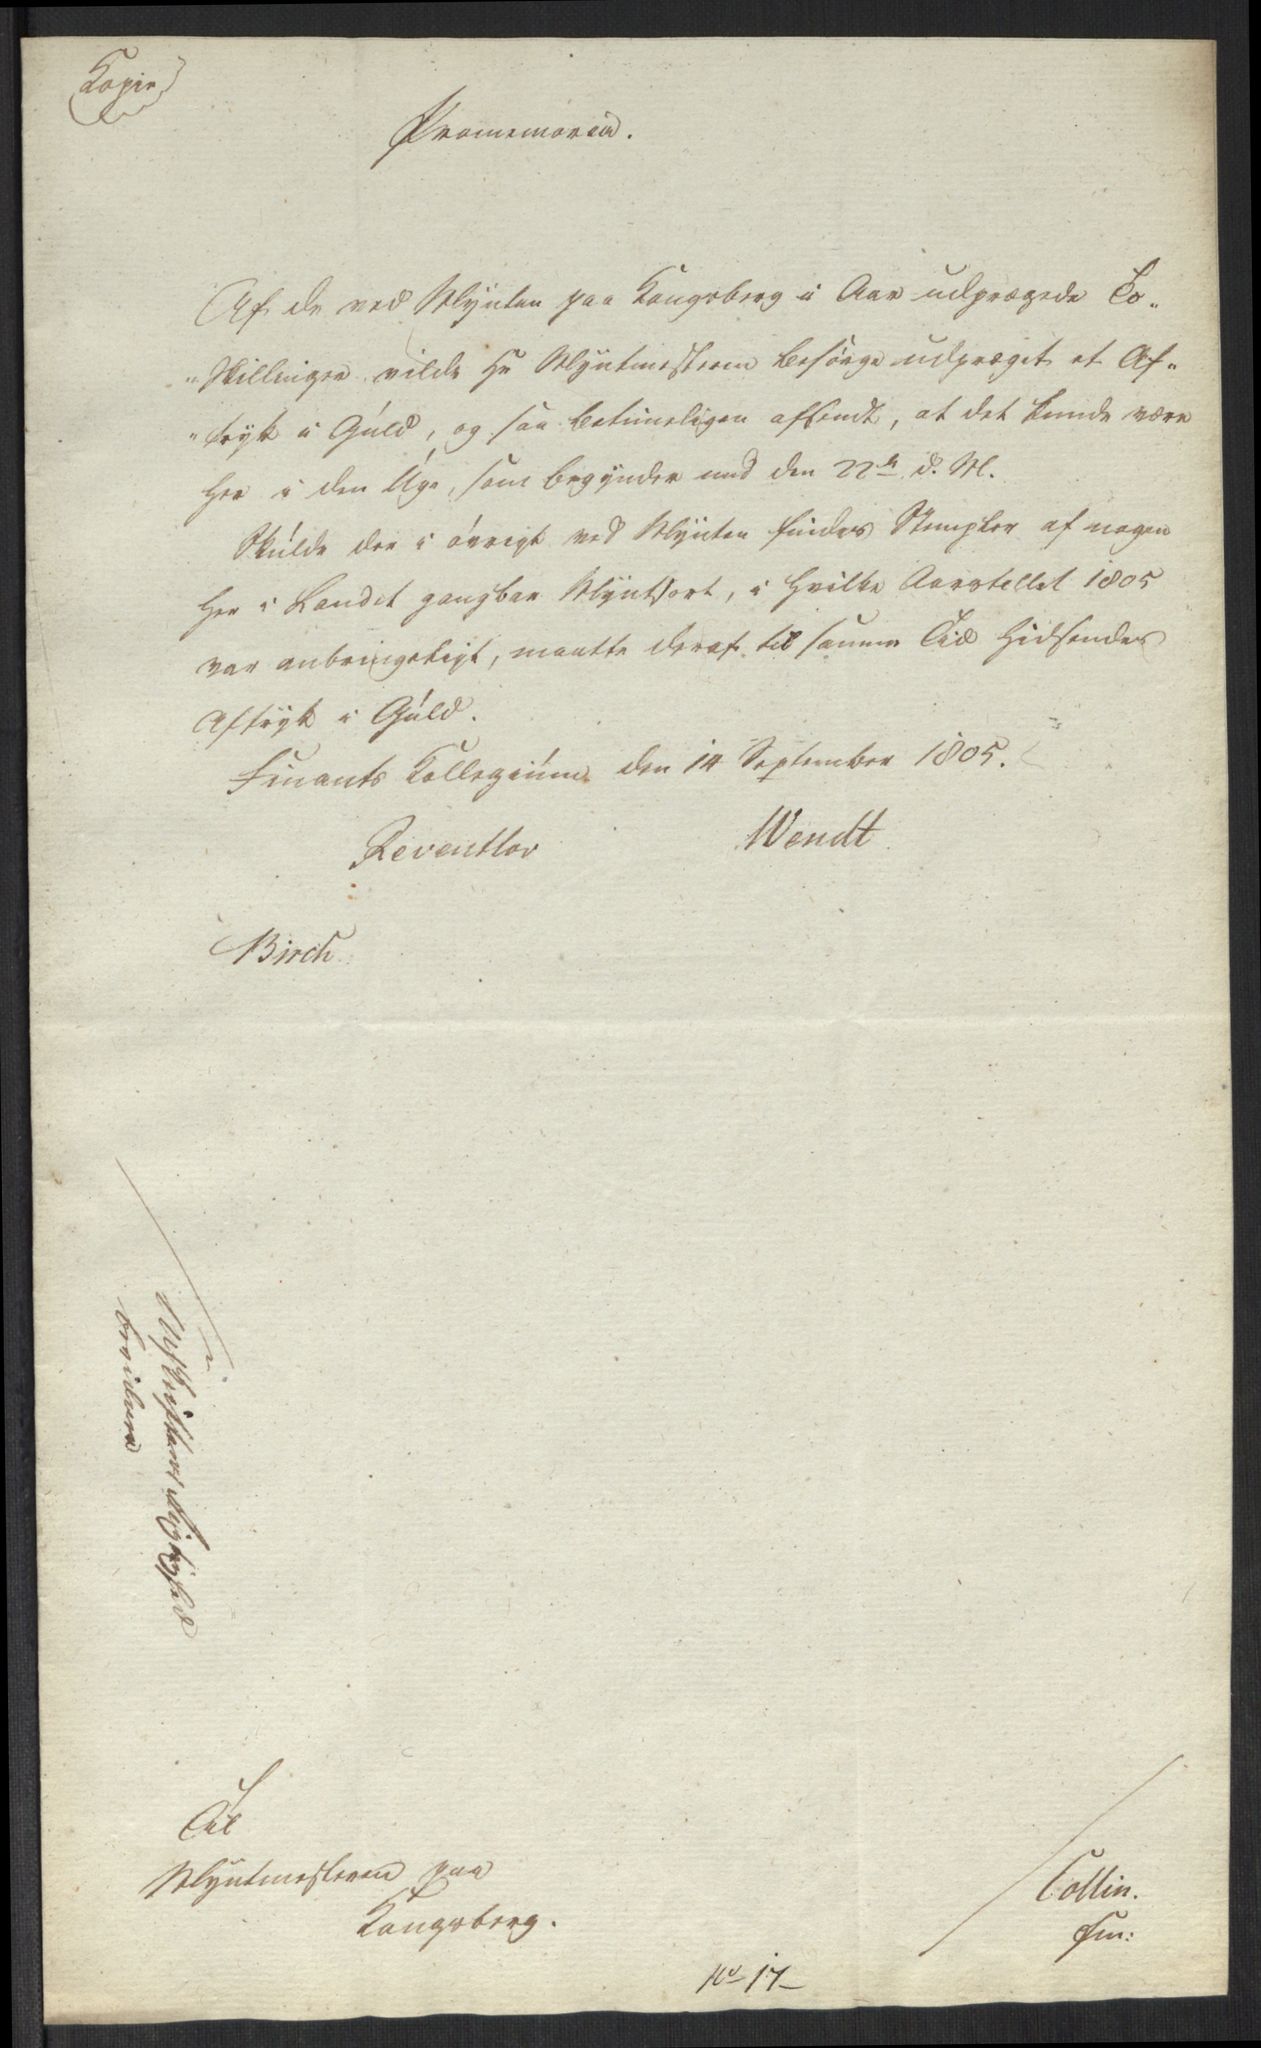 Kopie
Promemoria.
Af de ved Mÿnten paa Kongsberg i Aar udprægede To„
„skillinger vilde Hr Mÿntmesteren besørge udpræget et Af„
„trÿk i Guld, og saa betimeligen afsendt, at det kunde være
her i den Uge, som begÿnder med den 22de d. M.
Skulde der i øvrigt ved Mÿnten findes Stempler af nogen
her i Landet gangbar Mÿntsort, i hvilke Aarstallet 1805
var anbringeligt, maatte deraf til samme Tid hidsendes
Aftrÿk i Guld.
Finants Kollegium den 14 September 1805.
Reventlov Wendt
Birch
Afskriftens Rigtighed
bevidner
Til
Mÿntmesteren paa
Kongsberg.
Collin.
fm:
No 17